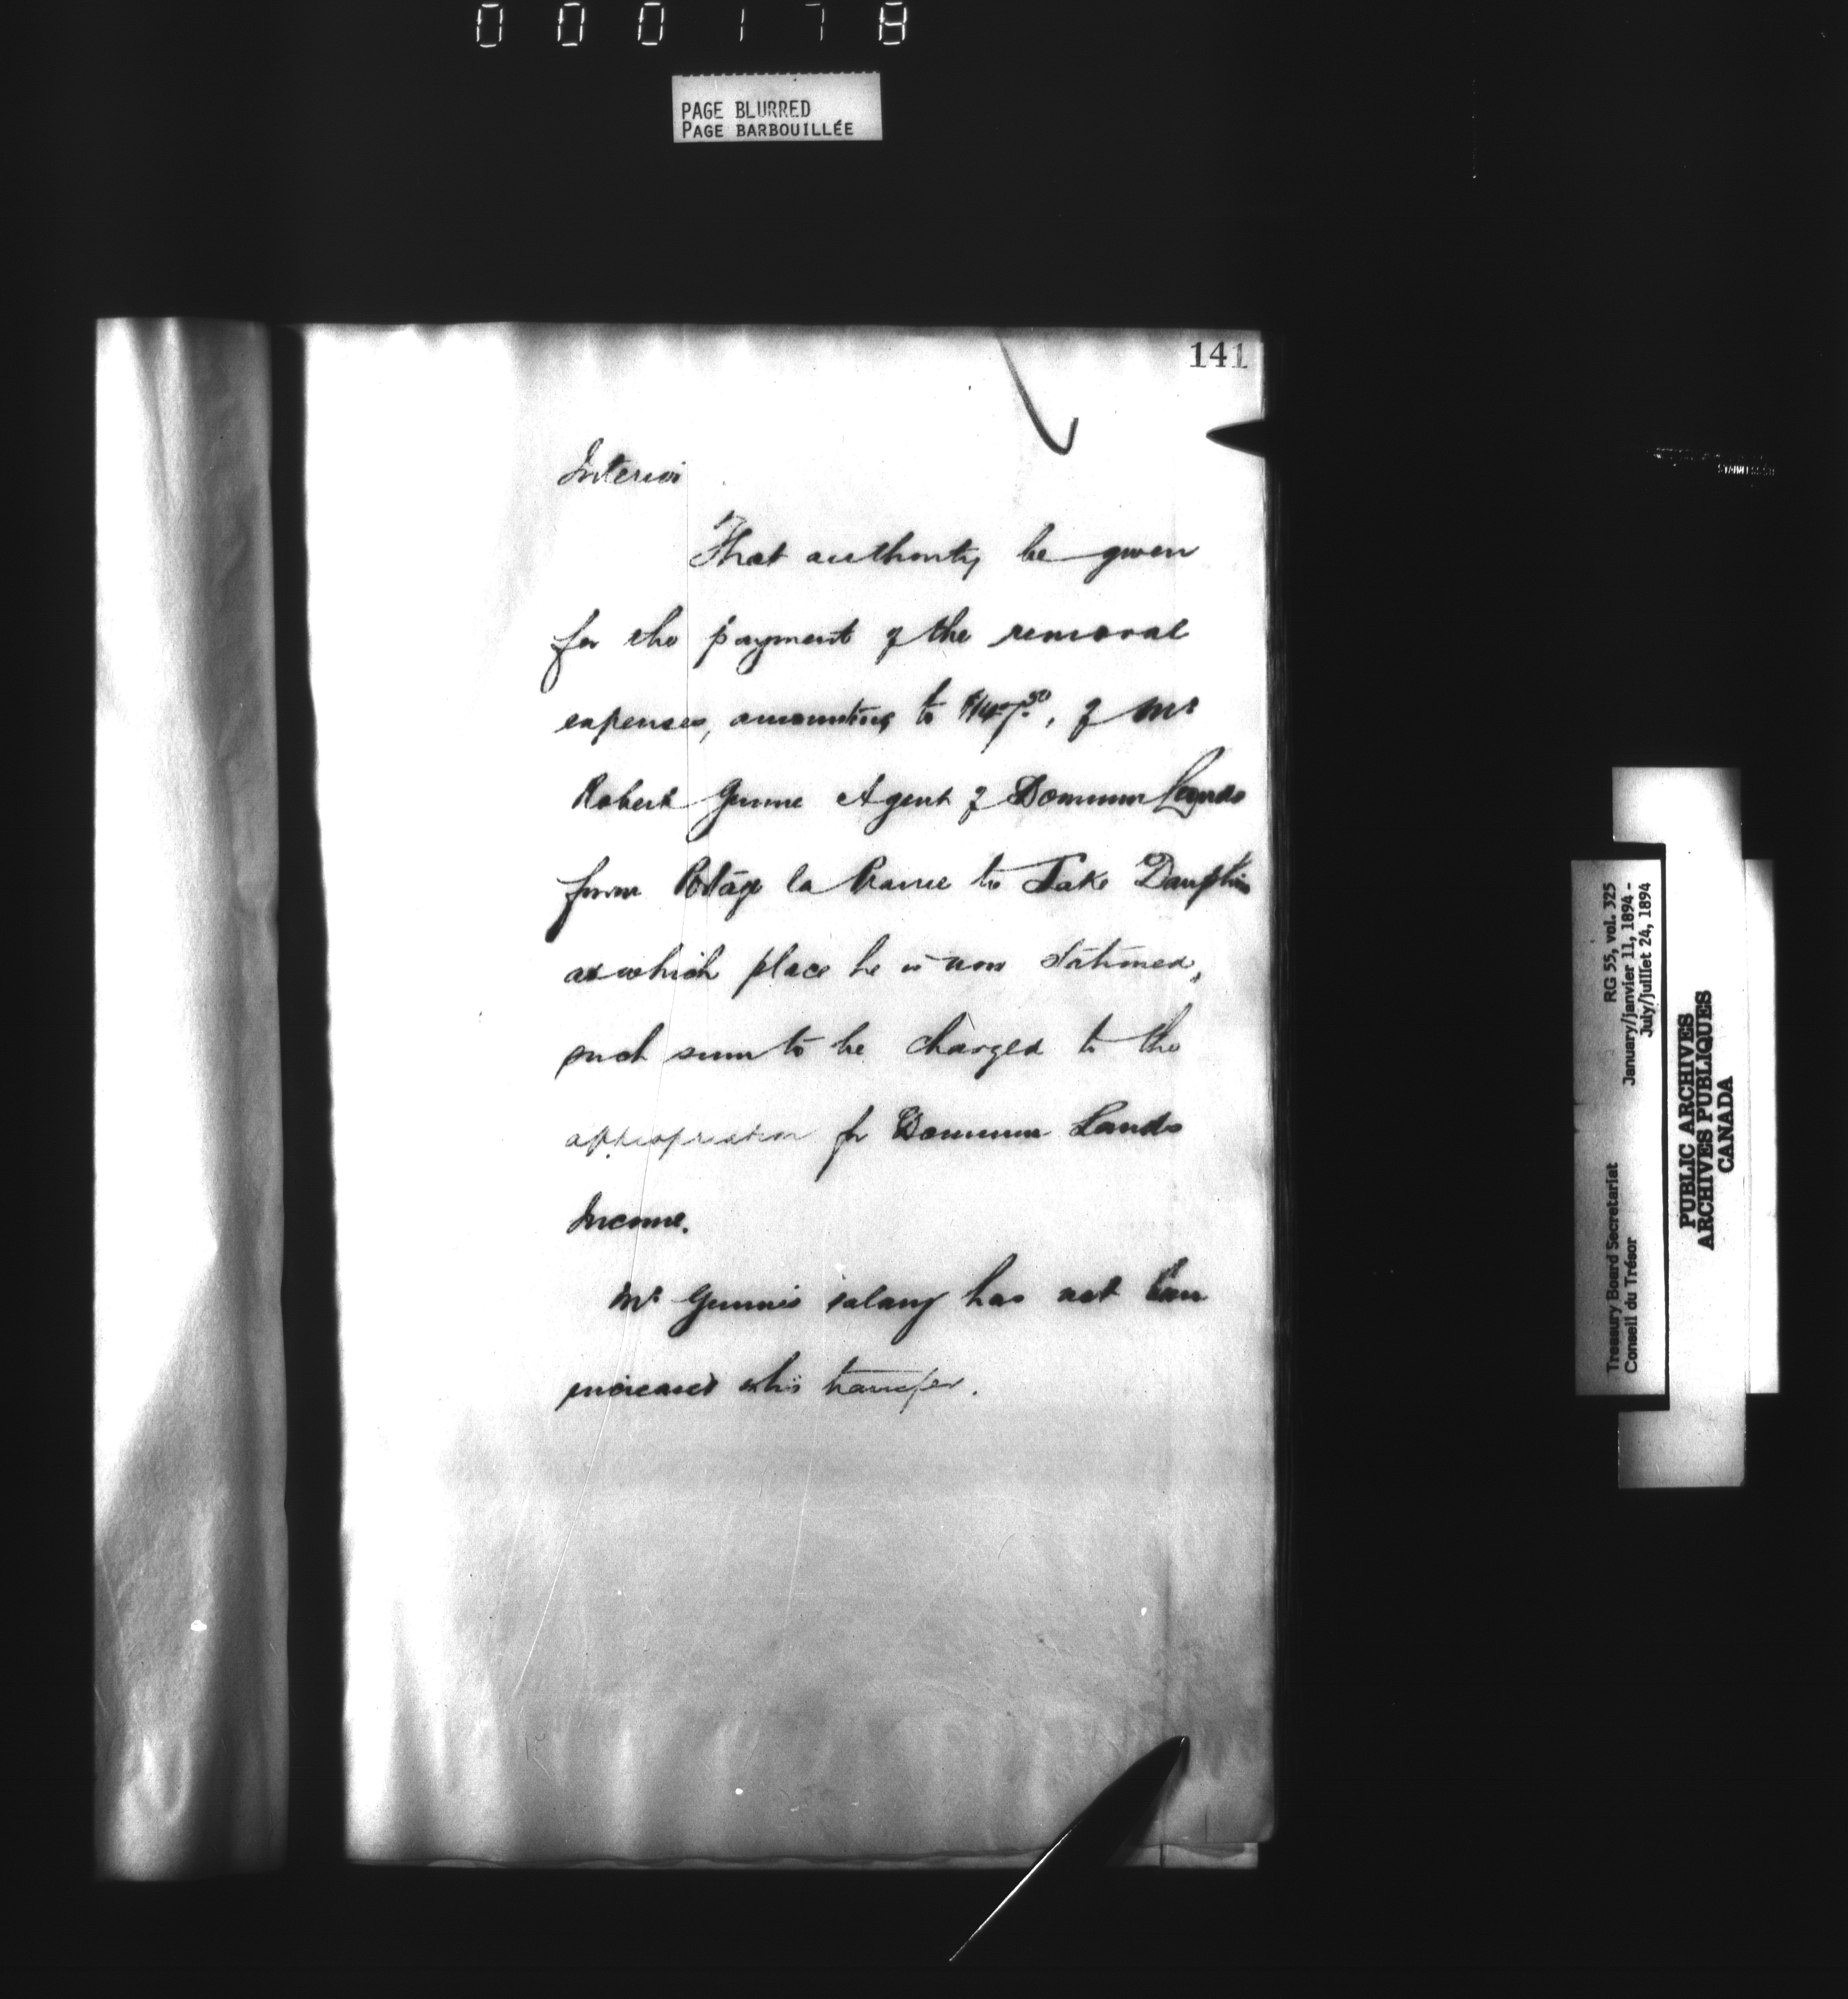 000178
PAGE BLURRED
PAGE BARBOUILLÉE
141
Interior
That authority be given
for the payment of the removal
expenses, amounting to $147.50, of Mr
Robert Gunne Agent of Dominion Lands
from Portage la Prairie to Lake Dauphin
at which place he is now stationed,
such sum to be charged to the
appropriation for Dominion Lands
Income.
Mr Gunne's salary has not been
increased this transfer.
Treasury Board Secretariat RG 55, vol. 325
Conseil du Trésor January/janvier 11, 1894 -
July/juillet 24, 1894
PUBLIC ARCHIVES
ARCHIVES PUBLIQUES
CANADA